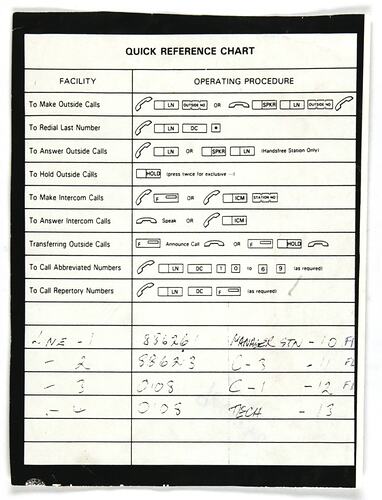 QUICK REFERENCE CHART
FACILITY OPERATING PROCEDURE
To Make Outside Calls LN OUTSIDE NO OR SPKR LN OUTSIDE NO
To Redial Last Number LN DC *
To Answer Outside Calls LN OR SPKR LN (Handsfree Station Only)
To Hold Outside Calls HOLD (press twice for exclusive —)
To Make Intercom Calls F OR ICM STATION NO
To Answer Intercom Calls Speak OR ICM
Transferring Outside Calls F Announce Call OR F HOLD
To Call Abbreviated Numbers LN DC 1 0 to 6 9 (as required)
To Call Repertory Numbers LN DC F (as required)
LINE - 1 886261 MANAGER STN - 10
- 2 886213 C - 3 - 11
- 3 0108 C - 1 - 12
- 4 0108 TECH - 13